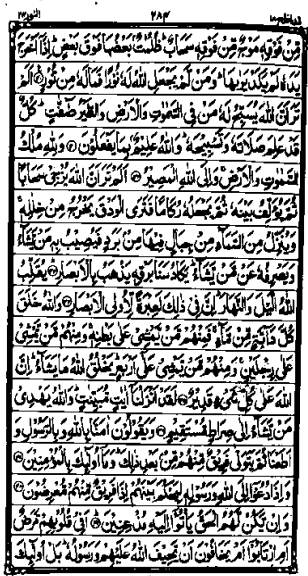 قد افلح ١٨ ٢٨٤ النور ٢٤
مِّنْ فَوْقِهٖ مَوْجٌ مِّنْ فَوْقِهٖ سَحَابٌ ظُلُمٰتٌۢ بَعْضُهَا فَوْقَ بَعْضٍ اِذَآ اَخْرَجَ
يَدَهٗ لَمْ يَكَدْ يَرٰىهَا وَمَنْ لَّمْ يَجْعَلِ اللّٰهُ لَهٗ نُوْرًا فَمَالَهٗ مِنْ نُّوْرٍ اَلَمْ
تَرَ اَنَّ اللّٰهَ يُسَبِّحُ لَهٗ مَنْ فِی السَّمٰوٰتِ وَالْاَرْضِ وَالطَّيْرُ صٰٓفّٰتٍ كُلٌّ
قَدْ عَلِمَ صَلَاتَهٗ وَتَسْبِيْحَهٗ وَاللّٰهُ عَلِيْمٌۢ بِمَا يَفْعَلُوْنَ وَلِلّٰهِ مُلْكُ
السَّمٰوٰتِ وَالْاَرْضِ وَاِلَی اللّٰهِ الْمَصِيْرُ اَلَمْ تَرَ اَنَّ اللّٰهَ يُزْجِیْ سَحَابًا
ثُمَّ يُؤَلِّفُ بَيْنَهٗ ثُمَّ يَجْعَلُهٗ رُكَامًا فَتَرَی الْوَدْقَ يَخْرُجُ مِنْ خِلٰلِهٖ
وَيُنَزِّلُ مِنَ السَّمَآءِ مِنْ جِبَالٍ فِيْهَا مِنْۢ بَرَدٍ فَيُصِيْبُ بِهٖ مَنْ يَّشَآءُ
وَيَصْرِفُهٗ عَنْ مَّنْ يَّشَآءُ يَكَادُ سَنَا بَرْقِهٖ يَذْهَبُ بِالْاَبْصَارِ يُقَلِّبُ
اللّٰهُ الَّيْلَ وَالنَّهَارَ اِنَّ فِیْ ذٰلِكَ لَعِبْرَةً لِّاُولِی الْاَبْصَارِ وَاللّٰهُ خَلَقَ
كُلَّ دَآبَّةٍ مِّنْ مَّآءٍ فَمِنْهُمْ مَّنْ يَّمْشِیْ عَلٰی بَطْنِهٖ وَمِنْهُمْ مَّنْ يَّمْشِیْ
عَلٰی رِجْلَيْنِ وَمِنْهُمْ مَّنْ يَّمْشِیْ عَلٰٓی اَرْبَعٍ يَخْلُقُ اللّٰهُ مَا يَشَآءُ اِنَّ
اللّٰهَ عَلٰی كُلِّ شَیْءٍ قَدِيْرٌ لَقَدْ اَنْزَلْنَآ اٰيٰتٍ مُّبَيِّنٰتٍ وَاللّٰهُ يَهْدِیْ
مَنْ يَّشَآءُ اِلٰی صِرَاطٍ مُّسْتَقِيْمٍ وَيَقُوْلُوْنَ اٰمَنَّا بِاللّٰهِ وَبِالرَّسُوْلِ وَ
اَطَعْنَا ثُمَّ يَتَوَلّٰی فَرِيْقٌ مِّنْهُمْ مِّنْۢ بَعْدِ ذٰلِكَ وَمَآ اُولٰٓئِكَ بِالْمُؤْمِنِيْنَ
وَاِذَا دُعُوْٓا اِلَی اللّٰهِ وَرَسُوْلِهٖ لِيَحْكُمَ بَيْنَهُمْ اِذَا فَرِيْقٌ مِّنْهُمْ مُّعْرِضُوْنَ
وَاِنْ يَّكُنْ لَّهُمُ الْحَقُّ يَاْتُوْٓا اِلَيْهِ مُذْعِنِيْنَ اَفِیْ قُلُوْبِهِمْ مَّرَضٌ
اَمِ ارْتَابُوْٓا اَمْ يَخَافُوْنَ اَنْ يَّحِيْفَ اللّٰهُ عَلَيْهِمْ وَرَسُوْلُهٗ بَلْ اُولٰٓئِكَ